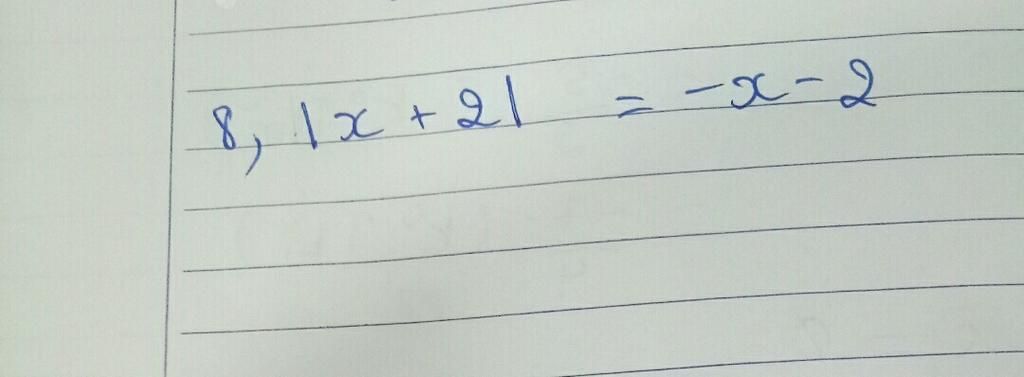 8, |x + 2| = -x - 2